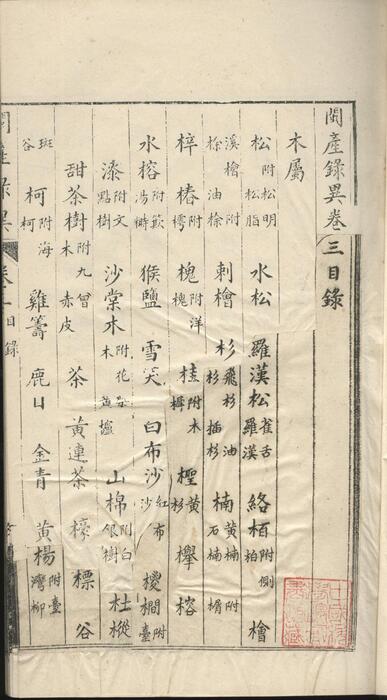 閩產錄異卷三目錄
木屬
松附松明松脂 水松 羅漢松雀舌羅漢 絡栢附側柏 檜
溪檜附油 刺檜 杉飛杉油杉插杉 楠黃楠附石楠楣
梓 椿附樗 槐附洋槐 桂附木樨 檉黃杉 櫸 榕
水榕附 猴鹽 雪 白布沙紅布沙 附
漆附文點樹 沙棠木附花 黃壚 山棉附白銀樹 杜樅
甜茶樹附九曾木 赤皮 茶 黃連茶 標 谷
斑谷 柯附海柯 雞籌 鹿日 金青 黃楊附臺灣柳
閩產錄異 卷三目錄